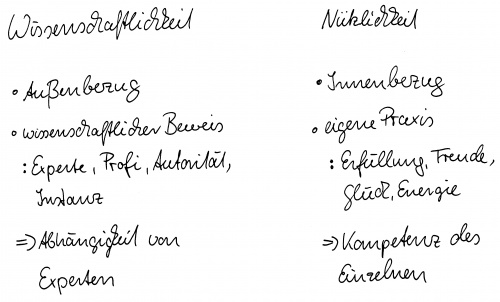 Wissenschaftlichkeit
• Außenbezug
• wissenschaftlicher Beweis
: Experte, Profi, Autorität,
Instanz
=> Abhängigkeit von
Experten
Nützlichkeit
• Innenbezug
• eigene Praxis
: Erfüllung, Freude,
Glück, Energie
=> Kompetenz des
Einzelnen